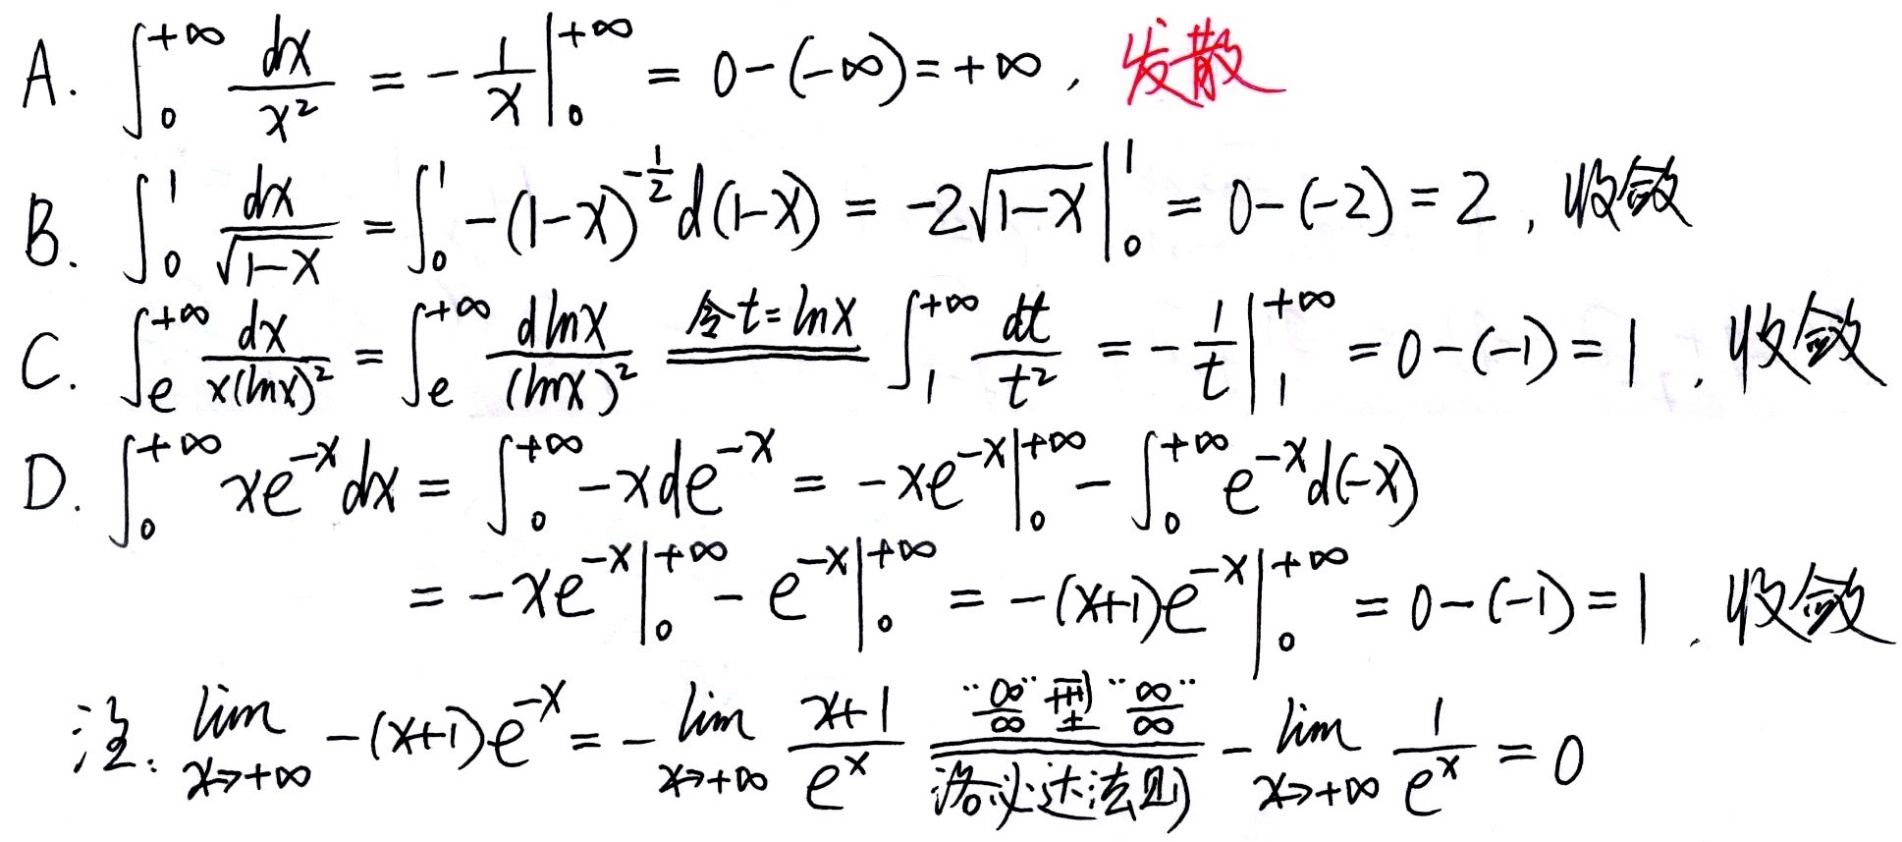 A. ∫₀^{+∞} dx/x² = -1/x |₀^{+∞} = 0-(-∞)=+∞, 发散
B. ∫₀¹ dx/√(1-x) = ∫₀¹ -(1-x)^{-1/2} d(1-x) = -2√(1-x) |₀¹ = 0-(-2)=2, 收敛
C. ∫ₑ^{+∞} dx/(x(lnx)²) = ∫ₑ^{+∞} dlnx/(lnx)² 令t=lnx ∫₁^{+∞} dt/t² = -1/t |₁^{+∞} = 0-(-1)=1, 收敛
D. ∫₀^{+∞} xe^{-x}dx = ∫₀^{+∞} -xde^{-x} = -xe^{-x} |₀^{+∞} - ∫₀^{+∞} e^{-x}d(-x)
= -xe^{-x} |₀^{+∞} - e^{-x} |₀^{+∞} = -(x+1)e^{-x} |₀^{+∞} = 0-(-1)=1, 收敛
注: lim_{x→+∞} -(x+1)e^{-x} = -lim_{x→+∞} (x+1)/e^x "∞/∞"型"∞/∞" 洛必达法则 -lim_{x→+∞} 1/e^x = 0